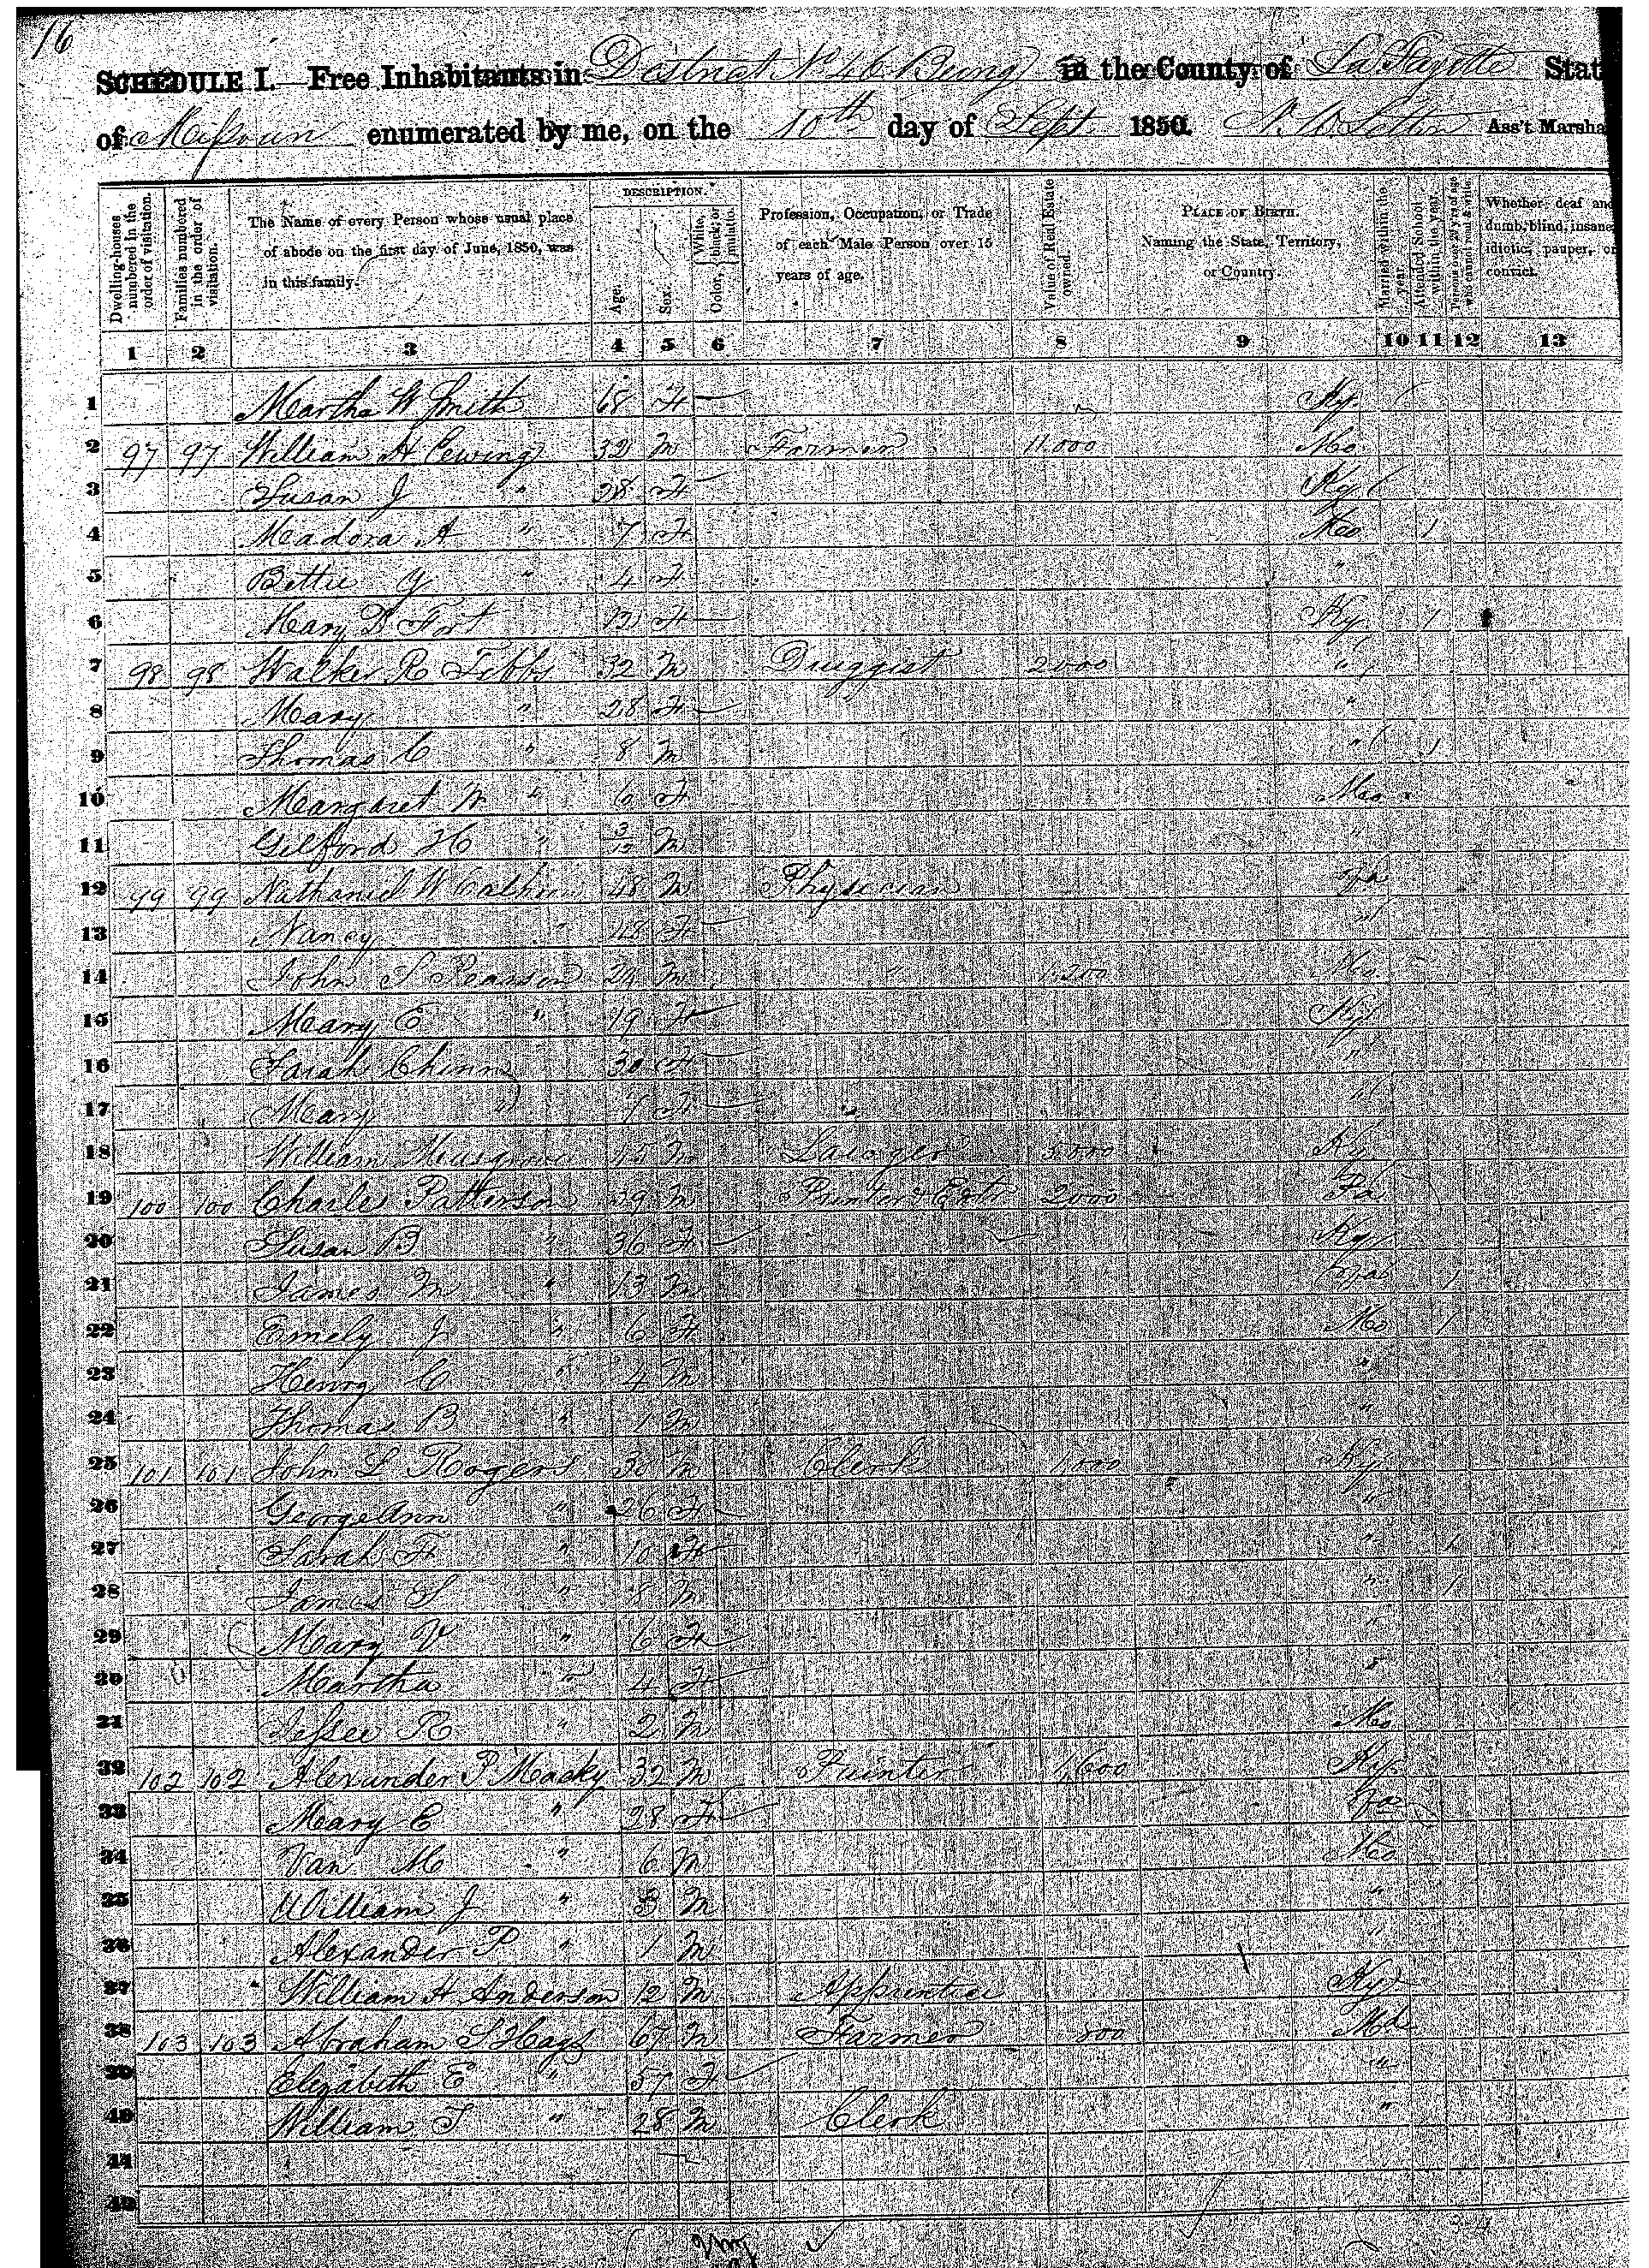 16
SCHEDULE I.—Free Inhabitants in District No 46 Being in the County of La Fayette Stat
of Missouri enumerated by me, on the 10th day of Sept 1850. Ass't Marsha
Dwelling-houses numbered in the order of visitation.
Families numbered in the order of visitation.
The Name of every Person whose usual place of abode on the first day of June, 1850, was in this family.
DESCRIPTION.
Age.
Sex.
Color, White, black, or mulatto.
Profession, Occupation, or Trade of each Male Person over 15 years of age.
Value of Real Estate owned.
PLACE OF BIRTH. Naming the State, Territory, or Country
Married within the year.
Attended School within the year.
Persons over 20 y'rs of age who cannot read & write.
Whether deaf and dumb, blind, insane, idiotic, pauper, or convict.
1 2 3 4 5 6 7 8 9 10 11 12 13
1 Martha W Smith 68 F Ky
2 97 97 William H Ewing 32 M Farmer 11,000 Mo
3 Susan J " 28 F Ky
4 Madora A " 7 F Mo 1
5 Bettie Y " 4 F "
6 Mary D Fort 13 F Ky 1
7 98 98 Walker R Tebbs 32 M Druggist 2000 "
8 Mary " 28 F "
9 Thomas C " 8 M " 1
10 Margaret W " 6 F Mo
11 Gilford H " 3/12 M "
12 99 99 Nathaniel W Calhoun 48 M Physician Va
13 Nancy " 48 F "
14 John S Pearson 29 M " Mo
15 Mary E " 19 F Ky
16 Sarah Chinn 30 F "
17 Mary " 7 F "
18 William Musgrove 15 M Ky
19 100 100 Charles Patterson 39 M 2000 Pa
20 Susan B " 36 F Ky
21 James M " 13 M Va 1
22 Emely J " 6 F Mo 1
23 Henry C " 4 M "
24 Thomas B " 1 M "
25 101 101 John L Rogers 30 M Clerk 1,000 Ky
26 GeorgeAnn " 26 F "
27 Sarah F " 10 F " 1
28 James S " 8 M " 1
29 Mary V " 6 F "
30 Martha " 4 F "
31 Jessee R " 2 M Mo
32 102 102 Alexander P Macky 32 M Painter 1,600 Ky
33 Mary E " 28 F Va
34 Van M " 6 M Mo
35 William J " 3 M "
36 Alexander P " 1 M "
37 William H Anderson 12 M Apprentice Ky
38 103 103 Abraham S Hays 67 M Farmer 500 Md
39 Elizabeth E " 57 F "
40 William T " 28 M Clerk "
41
42